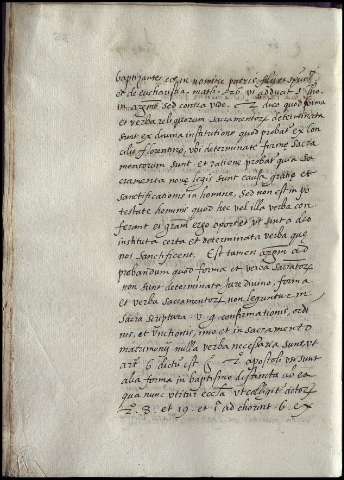 baptizantes eos in nomine patris, filii et spūs sti
et de eucharistia, math. 26. ut adducat s. tho.
in argmto sed contra vide. 2º dico quod forma
et verba reliquorum sacramentorz determinata
sunt ex divina institutione quod probat ex con
cilio florentino, ubi determinatę formę sacra
mentorum sunt et ratione probat quia sa
cramenta novę legis sunt causa gratię et
sanctificationis in homine, sed non est in po
testate hominis quod hec vel illa verba con
ferant ei gram ergo oportet ut sint a deo
instituta certa et determinata verba que
nos sanctificent. Est tamen argm ad
probandum quod forma et verba sacratorz
non sunt determinata iure divino. forma
et verba sacramentorz non leguntur in
sacra scriptura. v. g. confirmationis, ordi
nis, et unctionis, imo et in sacramento
matrimonij nulla verba necessaria sunt, ut
art. 6 dictū est 2º apostoli usi sunt
alia forma in baptismo distincta ab ea
qua nunc utitur eccła ut colligit actorz
2º. 8. et 19. et 1ª ad chorint. 6. ex